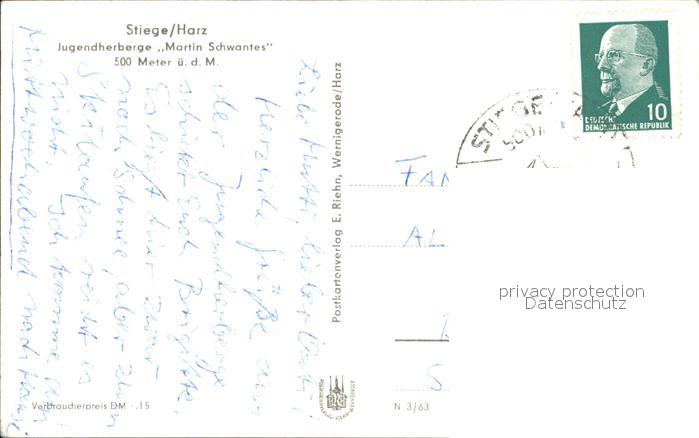 Stiege/Harz
Jugendherberge „Martin Schwantes"
500 Meter ü. d. M.
Liebe Mutti, lieber Vati!
Herzliche Grüße aus
der Jugendherberge
schickt Euch Brigitte.
Es liegt hier zwar
noch Schnee, aber zum
Skilaufen reicht es
nicht. Ich komme am
Mittwochabend nach Hause
Verbraucherpreis DM -.15
Postkartenverlag E. Riehn, Wernigerode/Harz
N 3/63
STIEGE
10
DEUTSCHE
DEMOKRATISCHE REPUBLIK
FAM
AL
privacy protection
Datenschutz